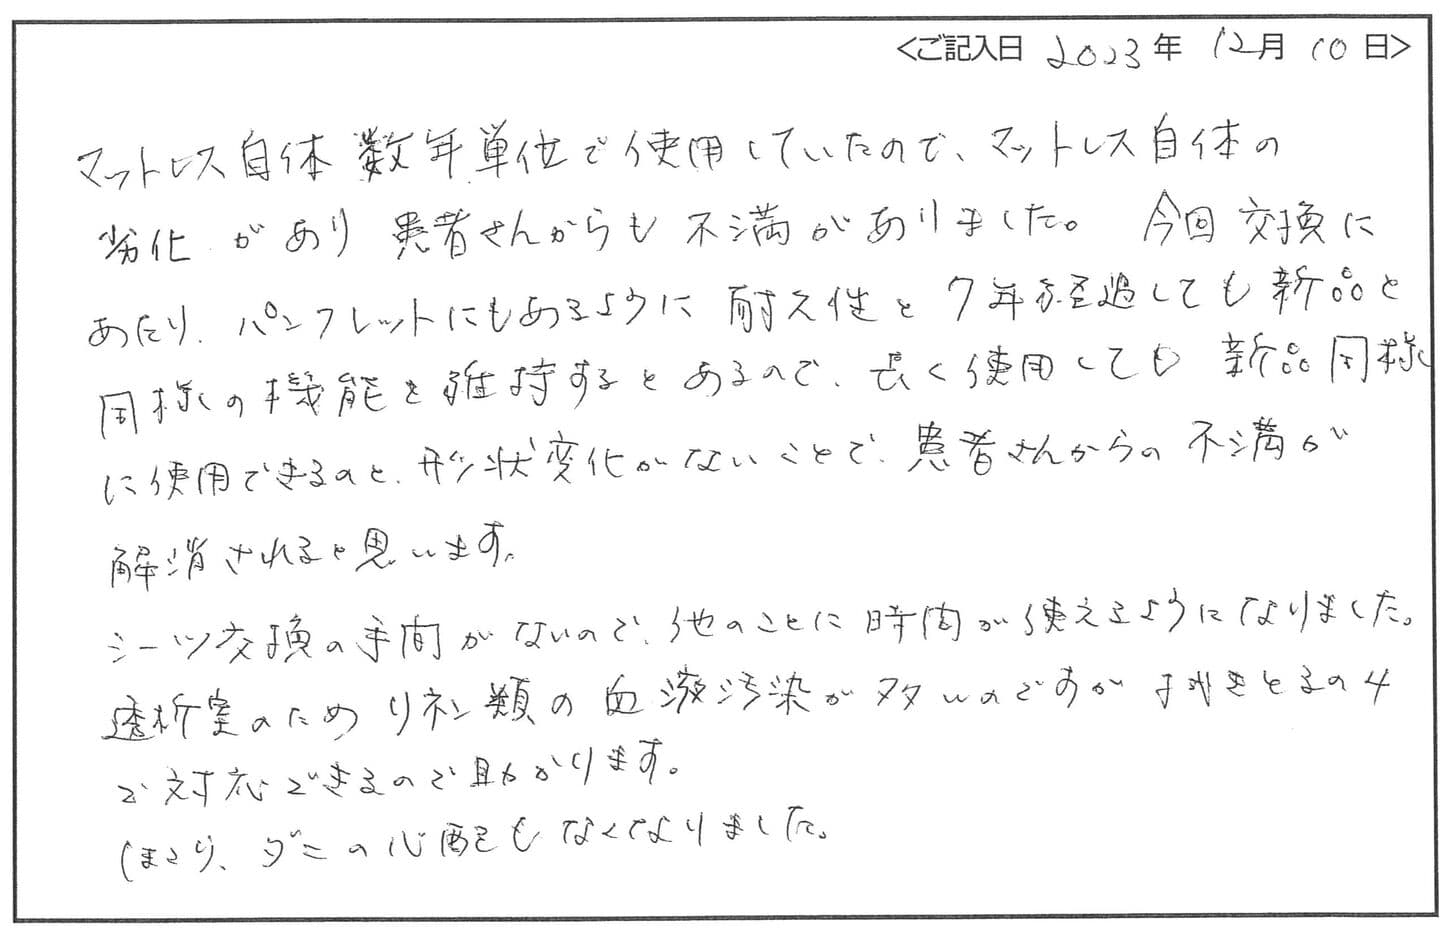 <ご記入日 2023年 12月 10日>
マットレス自体数年単位で使用していたので、マットレス自体の
劣化があり患者さんからも不満がありました。今回交換に
あたり、パンフレットにもあるように耐久性と7年経過しても新品と
同様の機能を維持するとあるので、長く使用しても新品同様
に使用できるのと、形状変化がないことで、患者さんからの不満が
解消されると思います。
シーツ交換の手間がないので、他のことに時間が使えるようになりました。
透析室のためリネン類の血液汚染が多いのですが拭きとるのみ
で対応できるので助かります。
ほこり、ダニの心配もなくなりました。